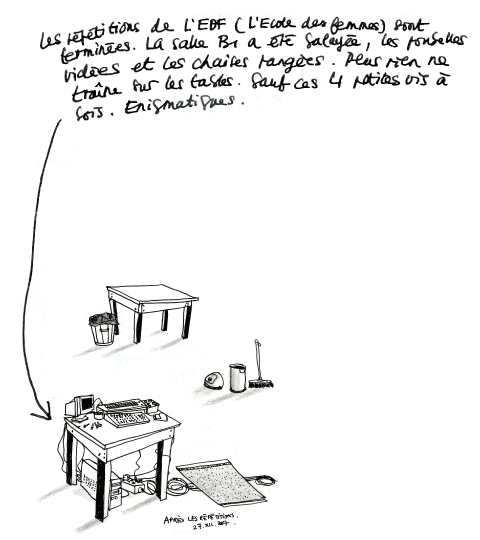 Les répétitions de L'EDF (L'Ecole des femmes) sont
terminées. La salle B1 a été balayée, les poubelles
vidées et les chaises rangées. Plus rien ne
traîne sur les tables. Sauf ces 4 petites vis à
bois. Enigmatiques.
APRÈS LES RÉPÉTITIONS.
27.XII.